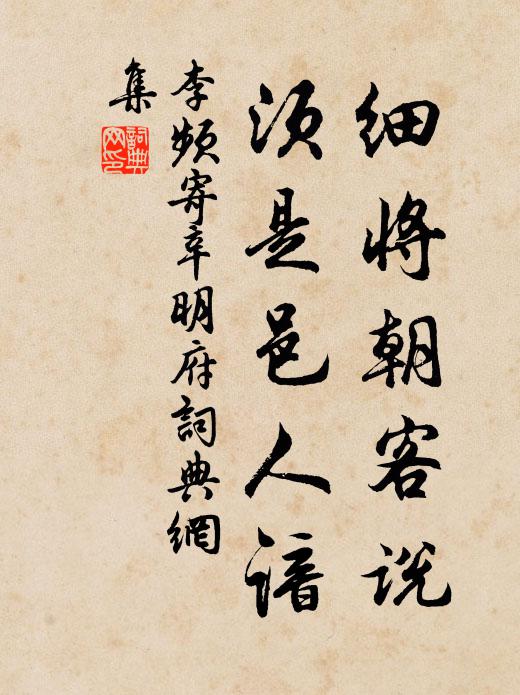 细将朝客说
须是邑人谙
李频寄辛明府詞典網
集
詞典
网印